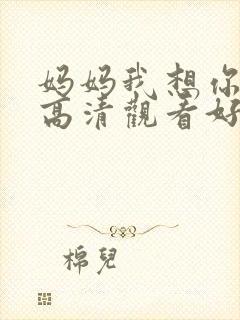 妈妈我想你
高清觀看好
棉兒